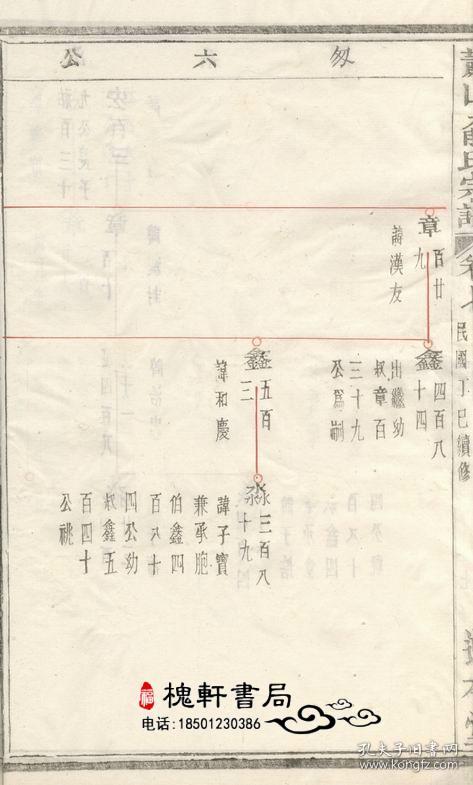 公 六 勿
民國丁巳續修
章百廿九
諱漢友
鑫四百八十四
出繼幼
叔章百
三十九
公爲嗣
鑫五百三
諱和慶
淼三百八十九
諱子寶
兼承胞
伯鑫四
百八十
四公幼
叔鑫五
百四十
公祧
槐軒書局
电话:18501230386
孔夫子旧书网
www.kongfz.com